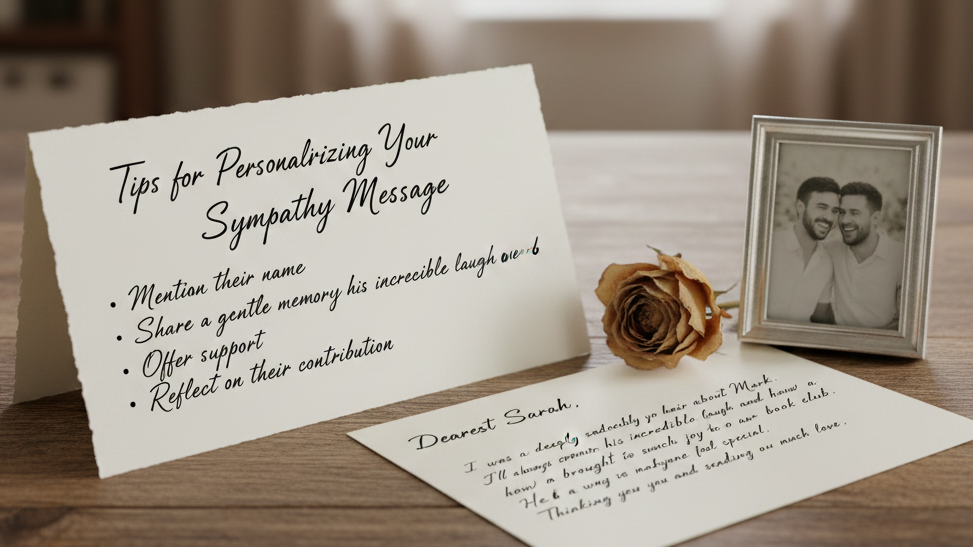 Tips for Personalrizing Your
Sympathy Message
• Mention their name
• Share a gentle memory his increcible laugh
• Offer support
• Reflect on their contribution
Dearest Sarah,
I was a deeply sadocbly yo hair about Mark.
I'll always his incredible laugh and honw a
how a brought is snuch joy to a our book club.
He & a wny is makyone fool special.
Thinking you you and sending ou much love.